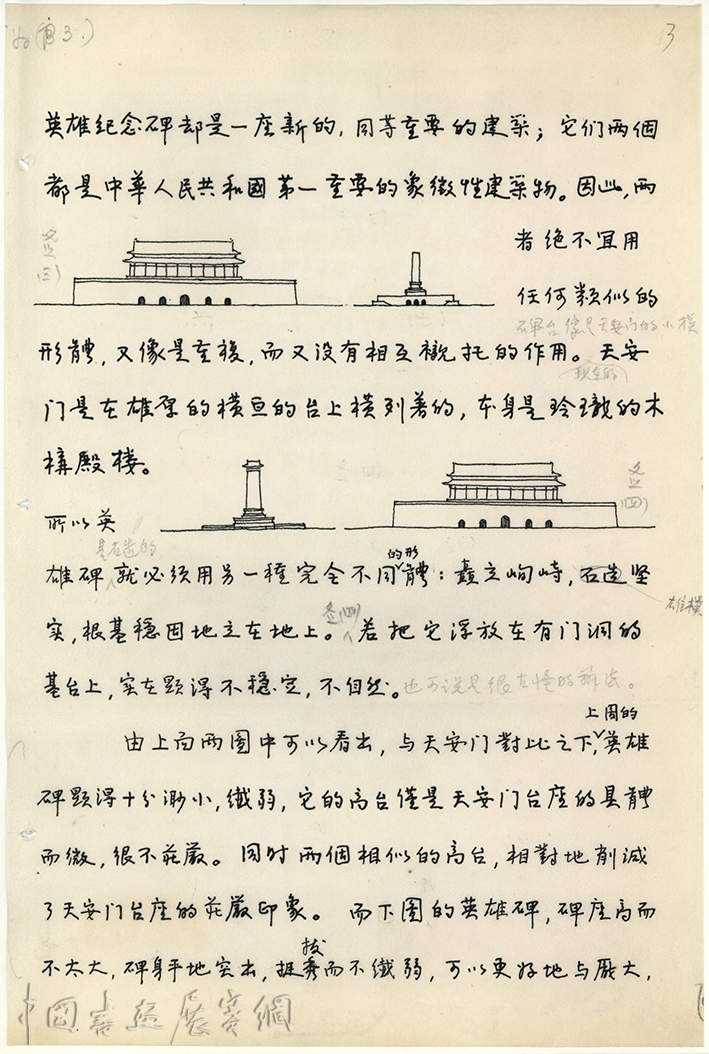 3
英雄纪念碑却是一座新的，同等重要的建筑；它们两個
都是中華人民共和國第一重要的象徵性建築物。因此，两
者绝不宜用
任何類似的
碑台像是天安门的小模
形體，又像是重複，而又没有相互襯托的作用。天安
现在的
门是在雄厚的横亘的台上横列着的，本身是玲瓏的木
構殿楼。
所以英
基石造的
的形
雄碑就必须用另一種完全不同體：矗立峋峙，石造坚
雄模
实，根基稳固地立在地上。若把它浮放在有门洞的
基台上，实在顕得不稳定，不自然。也可说是很古怪的辦法。
上图的
由上面两图中可以看出，与天安门對比之下，英雄
碑顕得十分渺小，纖弱，它的高台僅是天安门台座的具體
而微，很不莊嚴。同时两個相似的高台，相對地削減
了天安门台座的莊嚴印象。而下图的英雄碑，碑座高而
拔
不太大，碑身平地突出，挺秀而不纖弱，可以更好地与厖大，
中国書画展赛網